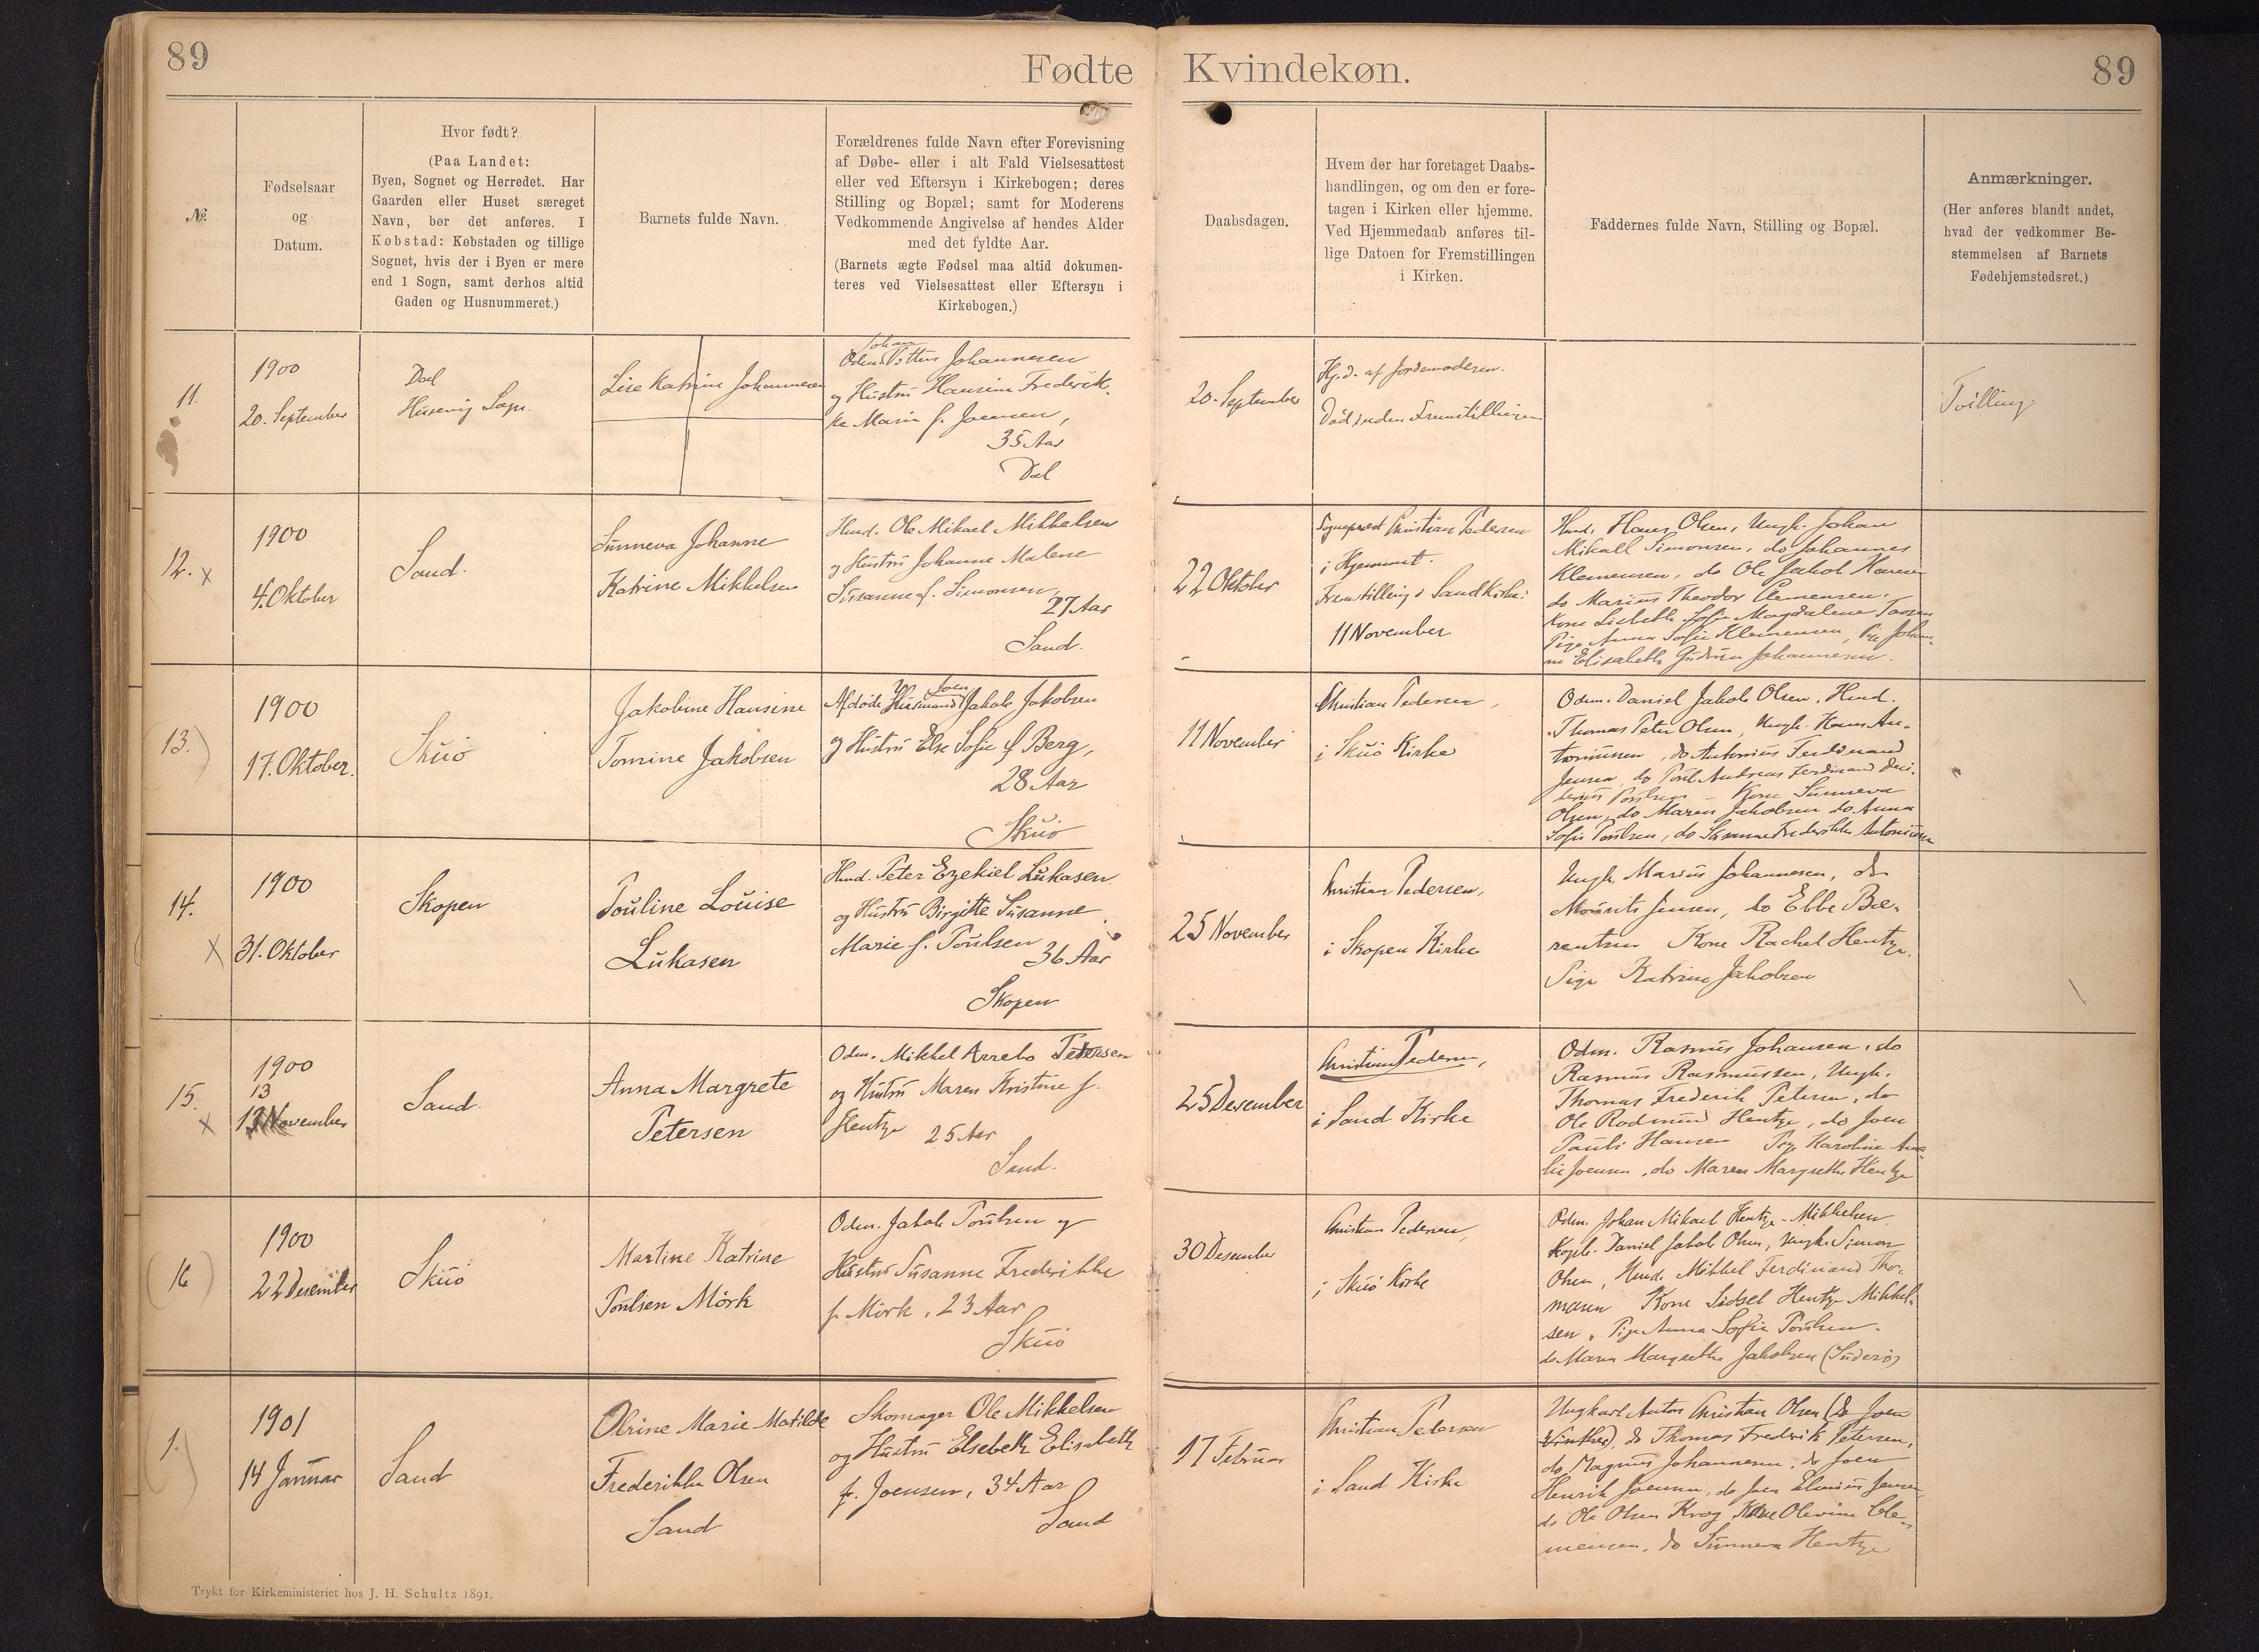 89
Fødte
Kvindekøn.
89
№
Fødselsaar
og
Datum.
Hvor født?
(Paa Landet:
Byen, Sognet og Herredet. Har
Gaarden eller Huset særeget
Navn, bør det anføres. I
Købstad: Købstaden og tillige
Sognet, hvis der i Byen er mere
end 1 Sogn, samt derhos altid
Gaden og Husnummeret.)
Barnets fulde Navn.
Forældrenes fulde Navn efter Forevisning
af Døbe- eller i alt Fald Vielsesattest
eller ved Eftersyn i Kirkebogen; deres
Stilling og Bopæl; samt for Moderens
Vedkommende Angivelse af hendes Alder
med det fyldte Aar.
(Barnets ægte Fødsel maa altid dokumen-
teres ved Vielsesattest eller Eftersyn i
Kirkebogen.)
Daabsdagen.
Hvem der har foretaget Daabs-
handlingen, og om den er fore-
tagen i Kirken eller hjemme.
Ved Hjemmedaab anføres til-
lige Datoen for Fremstillingen
i Kirken.
Faddernes fulde Navn, Stilling og Bopæl.
Anmærkninger.
(Her anføres blandt andet,
hvad der vedkommer Be-
stemmelsen af Barnets
Fødehjemstedsret.)
11.
1900
20. September
Dal
Husevig Sogn
Lise Katrine Johannesen
Johan
Odm. Johannesen
og Hustru Hansine Frederik-
ke Marie f. Joensen,
35 Aar
Dal
20. September
Hj.d. af Jordemoderen.
Død inden Fremstillingen
Tvilling.
12. x
1900
4. Oktober
Sand.
Sunneva Johanne
Katrine Mikkelsen
Husd. Ole Mikael Mikkelsen
og Hustru Johanne Malene
Susanne f. Simonsen,
27 Aar
Sand.
22 Oktober
Sognepræst Christian Pedersen
i Hjemmet.
Fremstilling i Sand Kirke:
11 November
Husd. Hans Olsen, Ungk. Johan
Mikall Simonsen, do Johannes
Klemensen, do Ole Jakob Hansen
do Marius Theodor Clemensen.
Kone Lisbeth Sofie Magdalene
Pige Anna Sofie Klemensen, Pige Johan-
ne Elisabeth Gudrun Johannesen.
13.
1900
17. Oktober.
Skuø
Jakobine Hansine
Tomine Jakobsen
Joen
Afdøde Husmand Jakob Jakobsen
og Hustru Else Sofie f Berg,
28 Aar
Skuø
11 November
Christian Pedersen,
i Skuø Kirke
Odm. Daniel Jakob Olsen, Husd.
Thomas Peter Olsen, Ungk. Hans An-
toniussen, do Antonius Ferdinand
Jensen, do Poul Andreas Ferdinand
Poulsen Kone Sunneva
Olsen, do Maren Jakobsen do Anna
Sofie Poulsen, do Susanne Frederikke Antoniussen
14.
X
1900
31. Oktober
Skopen
Pouline Louise
Lukasen
Husd. Peter Ezekiel Lukasen
og Hustru Birgitte Susanne
Marie f. Poulsen
36 Aar
Skopen
25 November
Christian Pedersen,
i Skopen Kirke
Ungk. Marius Johannesen, do
Mourits Jensen, do Ebbe Bæ-
rentsen Kone Rachel Hentze,
Pige Katrine Jakobsen
15.
x
1900
13
November
Sand
Anna Margrete
Petersen
Odm. Mikkel Arrebo Petersen
og Hustru Maren Kristine f.
Hentze 25 Aar
Sand.
25 Desember
Christian Pedersen,
i Sand Kirke
Odm. Rasmus Johansen, do
Rasmus Rasmussen, Ungk.
Thomas Frederik Petersen, do
Ole Rodmund Hentze, do Joen
Pauli Hansen Pige Karoline Ama-
lie Joensen, do Maren Margrethe Hentze
16
1900
22 Desember
Skuø
Martine Katrine
Poulsen Mörk
Odm. Jakob Poulsen og
Hustru Susanne Frederikke
f. Mörk, 23 Aar
Skuø
30 Desember
Christian Pedersen,
i Skuø Kirke
Odm. Johan Mikael Hentze-Mikkelsen
Daniel Jakob Olsen, Ungk. Simon
Olsen, Husd. Mikkel Ferdinand Tho-
masen Kone Sidsel Hentze Mikkel-
sen, Pige Anna Sofie Poulsen.
do Maren Margrethe Jakobsen (Suderø)
1.
1901
14 Januar
Sand
Olrine Marie Matilde
Frederikke Olsen
Sand
Skomager Ole Mikkelsen
og Hustru Elsebeth Elisabeth
f. Joensen, 34 Aar
Sand
17 Februar
Christian Pedersen
i Sand Kirke
Ungkarl Anton Christian Olsen (do Joen
Winther), do Thomas Frederik Petersen,
do Magnus Johannesen, do Joen
Henrik Joensen, do Joen
do Ole Olsen Krog Kone Olevine Cle-
mensen, do Sunneva Hentze
Trykt for Kirkeministeriet hos J. H. Schultz 1891.